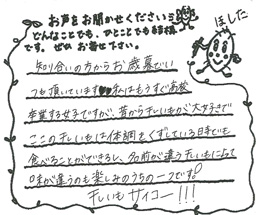 お声をお聞かせください
どんなことでも、ひとことでも結構
です。ぜひ お寄せ下さい。
ほした
知り合いの方からお歳暮でい
つも頂いています♥私はもうすぐ高校
卒業する女子ですが、昔から干しいもが大好きで
ここの干しいもは体調をくずしている日でも
食べることができるし、名前が違う干しいもによって
味が違うのも楽しみのうちの一つです!
干しいもサイコー!!!